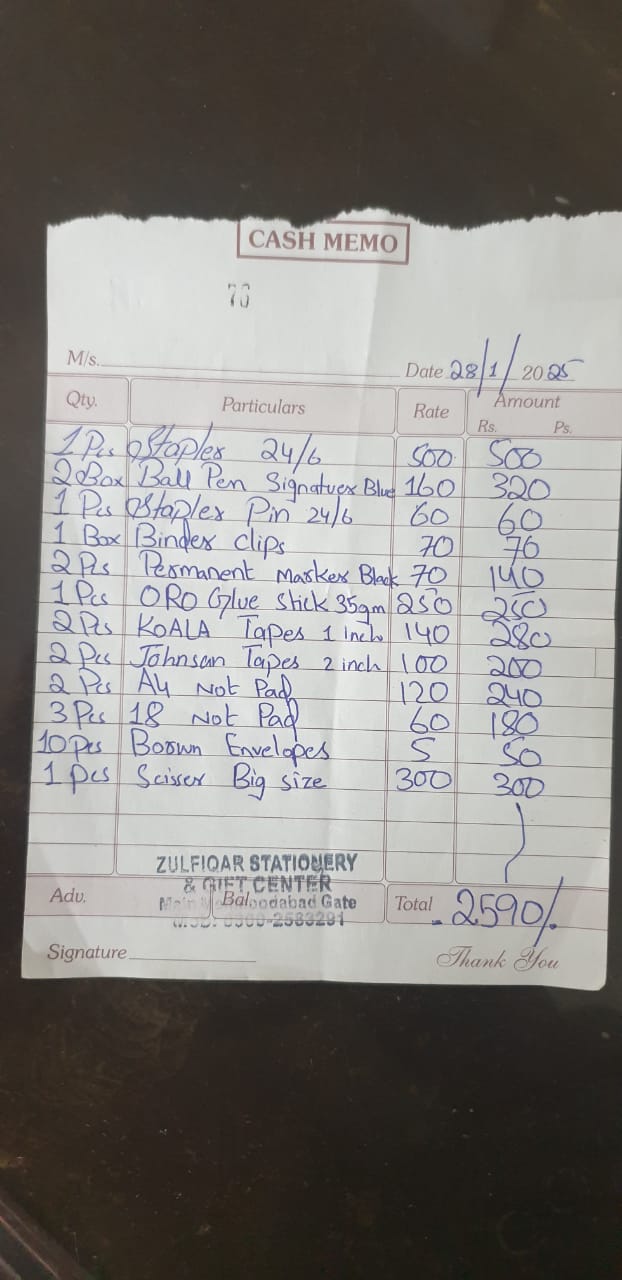 CASH MEMO
76
M/s.
Date 28/1/2025
Qty. Particulars Rate Amount
Rs. Ps.
1 Pcs Stapler 24/6 500 500
2 Box Ball Pen Signatuer Blue 160 320
1 Pcs Stapler Pin 24/6 60 60
1 Box Binder clips 70 70
2 Pcs Permanent Marker Black 70 140
1 Pcs ORO Glue stick 35gm 250 250
2 Pcs KOALA Tapes 1 inch 140 280
2 Pcs Johnsan Tapes 2 inch 100 200
2 Pcs A4 Not Pad 120 240
3 Pcs 18 Not Pad 60 180
10 Pcs Brown Envelopes 5 50
1 pcs Scisser Big size 300 300
ZULFIQAR STATIONERY
& GIFT CENTER
Adv. Bal. Total 2590/-
Gate
Signature Thank You